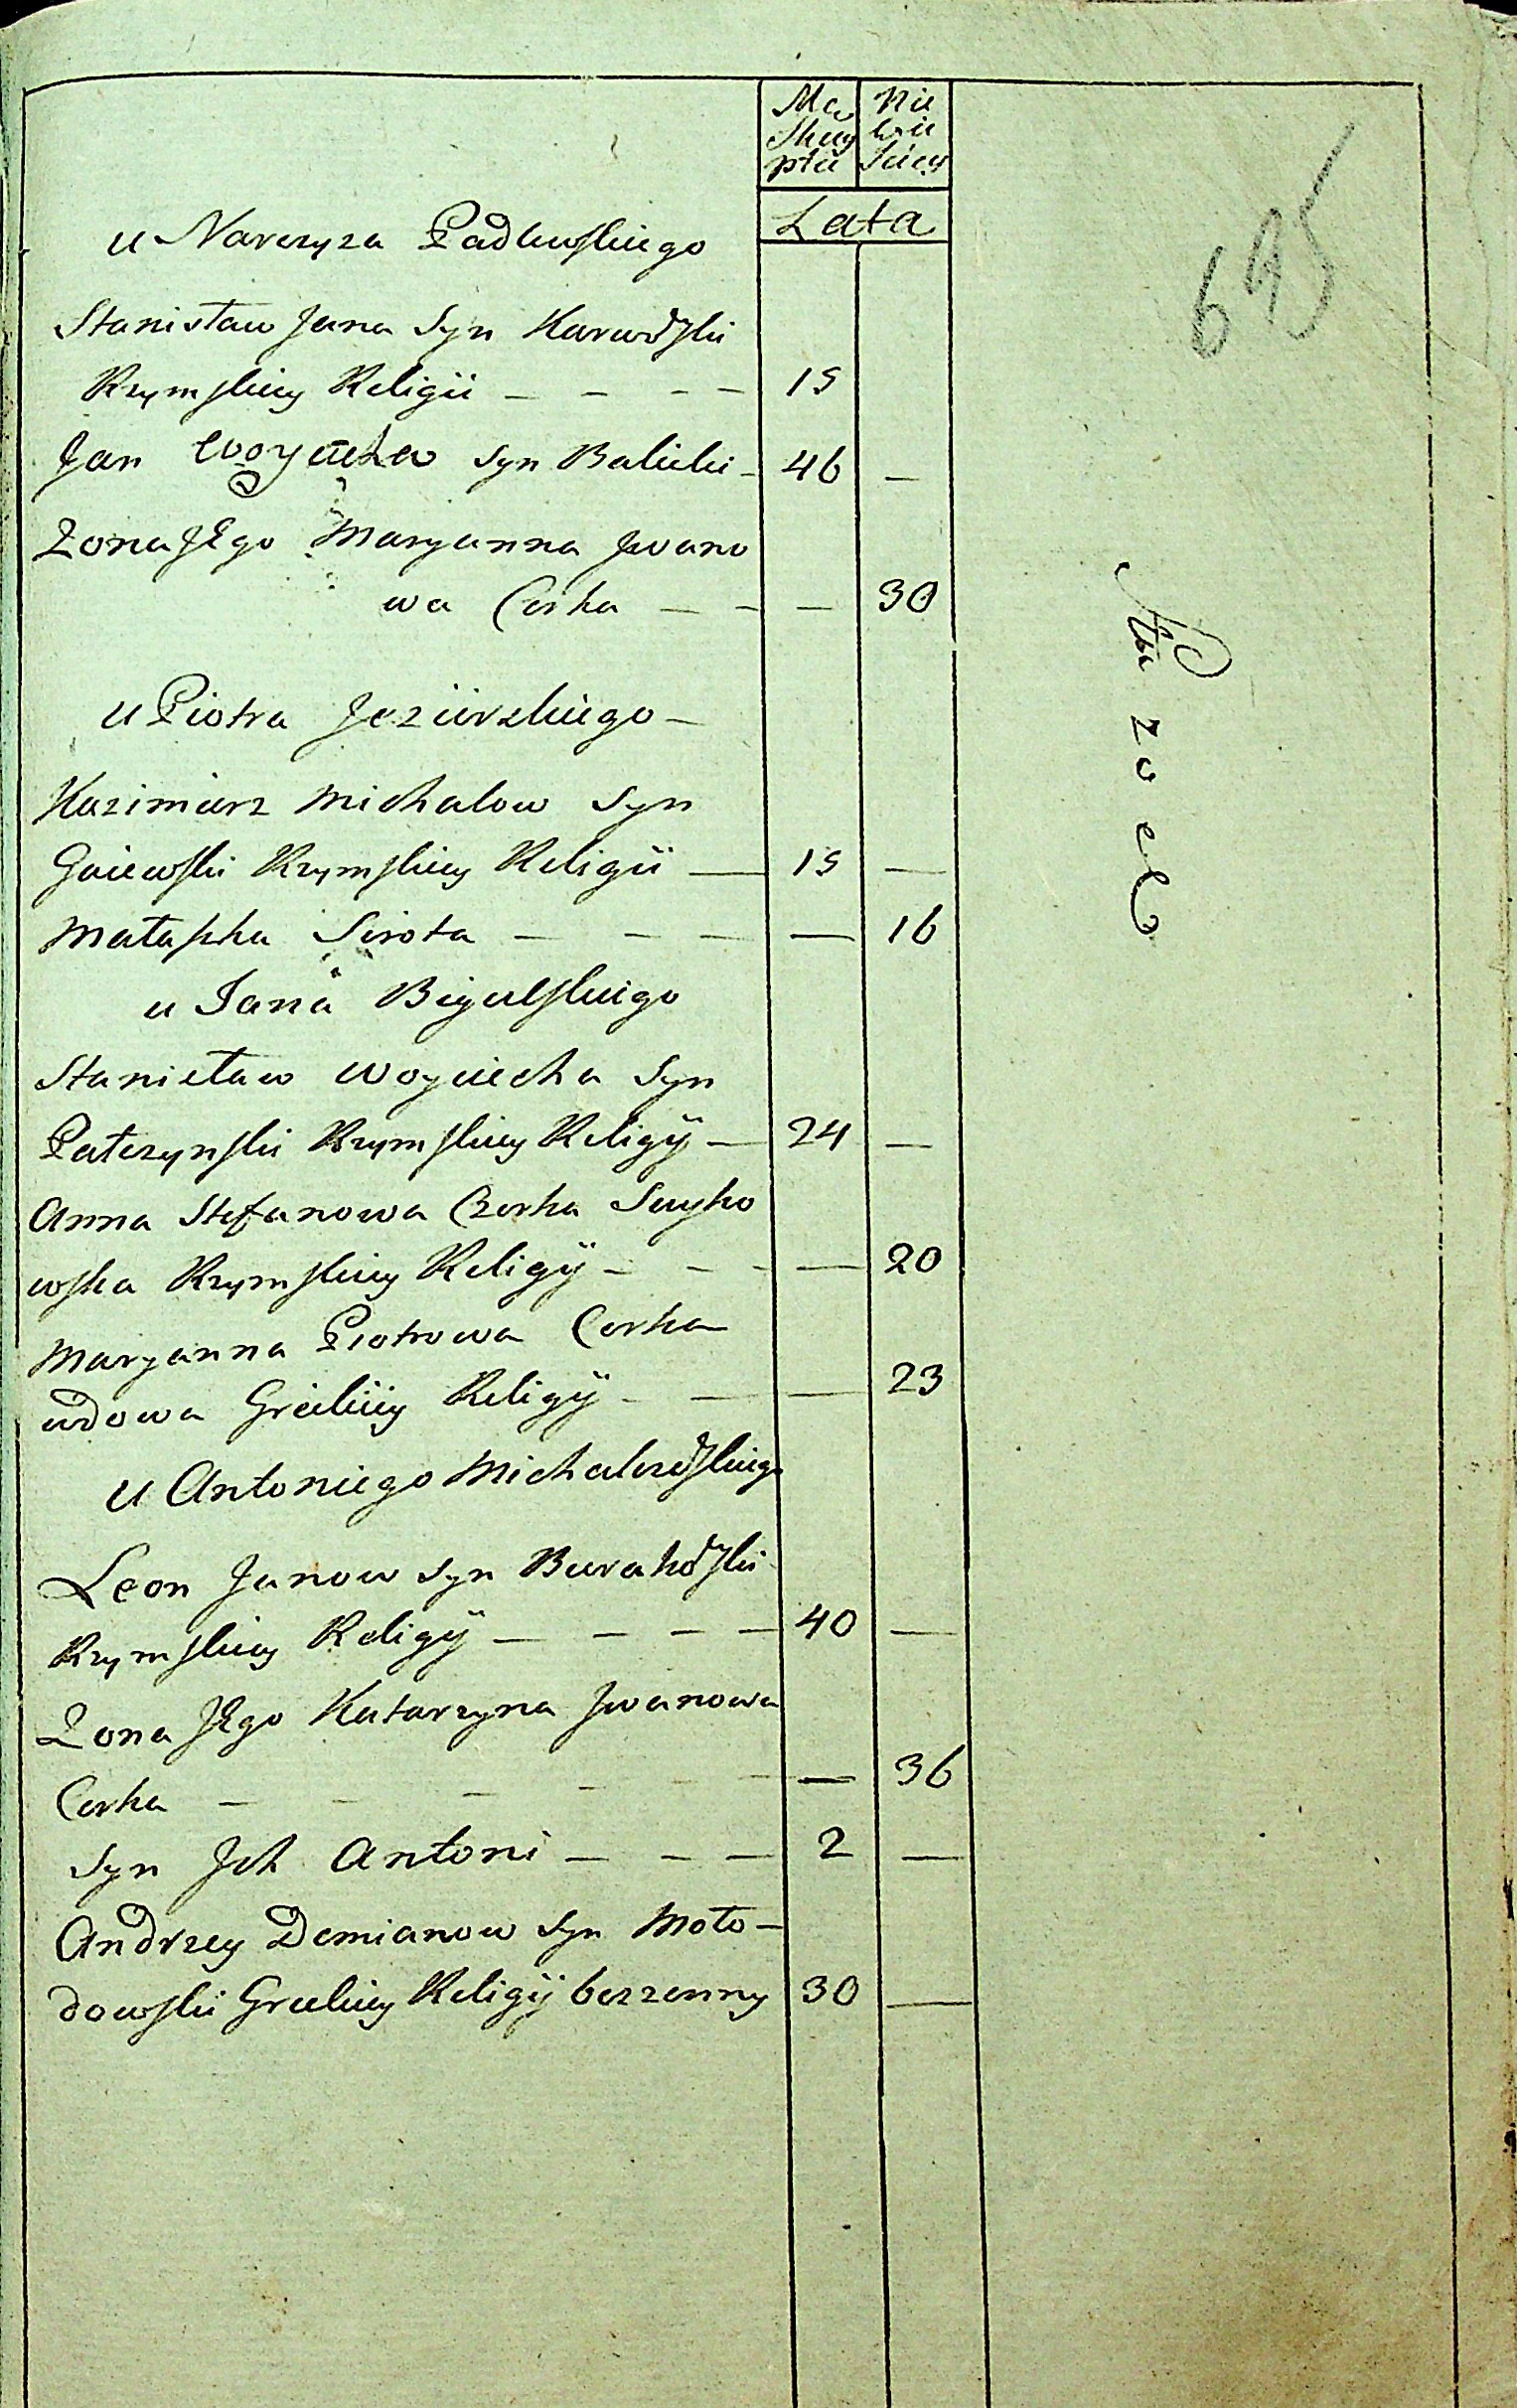 Mę Nie
skiey wie
płci sciey
Lata
695
u Narcyza Padlewskiego
Stanisław Jana Syn Karwowski
Rzymskiey Religii — — — — 15
Jan Woyciecha Syn Balicki — 46 —
Zona JEgo Maryanna Jwano
wa Corka — — — 30
u Piotra Jezierskiego —
Kazimierz Michalow Syn
Gaiewski Rzymskiey Religii — 15 —
Mataszka Sirota — — — — 16
u Jana Bigulskiego
Stanisław Woyciecha Syn
Patczynski Rzymskiey Religij — 24 —
Anna Stefanowa Czorka
wska Rzymskiey Religij — — — — 20
Maryanna Piotrowa Corka
wdowa Greckiey Religij — — — 23
u Antoniego Michalczewskiego
Leon Janow Syn Burakowski
Rzymskiey Religij — — — — 40 —
Zona JEgo Katarzyna Jwanowa
Corka — — — — — — — 36
Syn Jch Antoni — — — 2 —
Andrzey Demianow Syn Moło-
dowski Greckiey Religij bezzenny 30 —